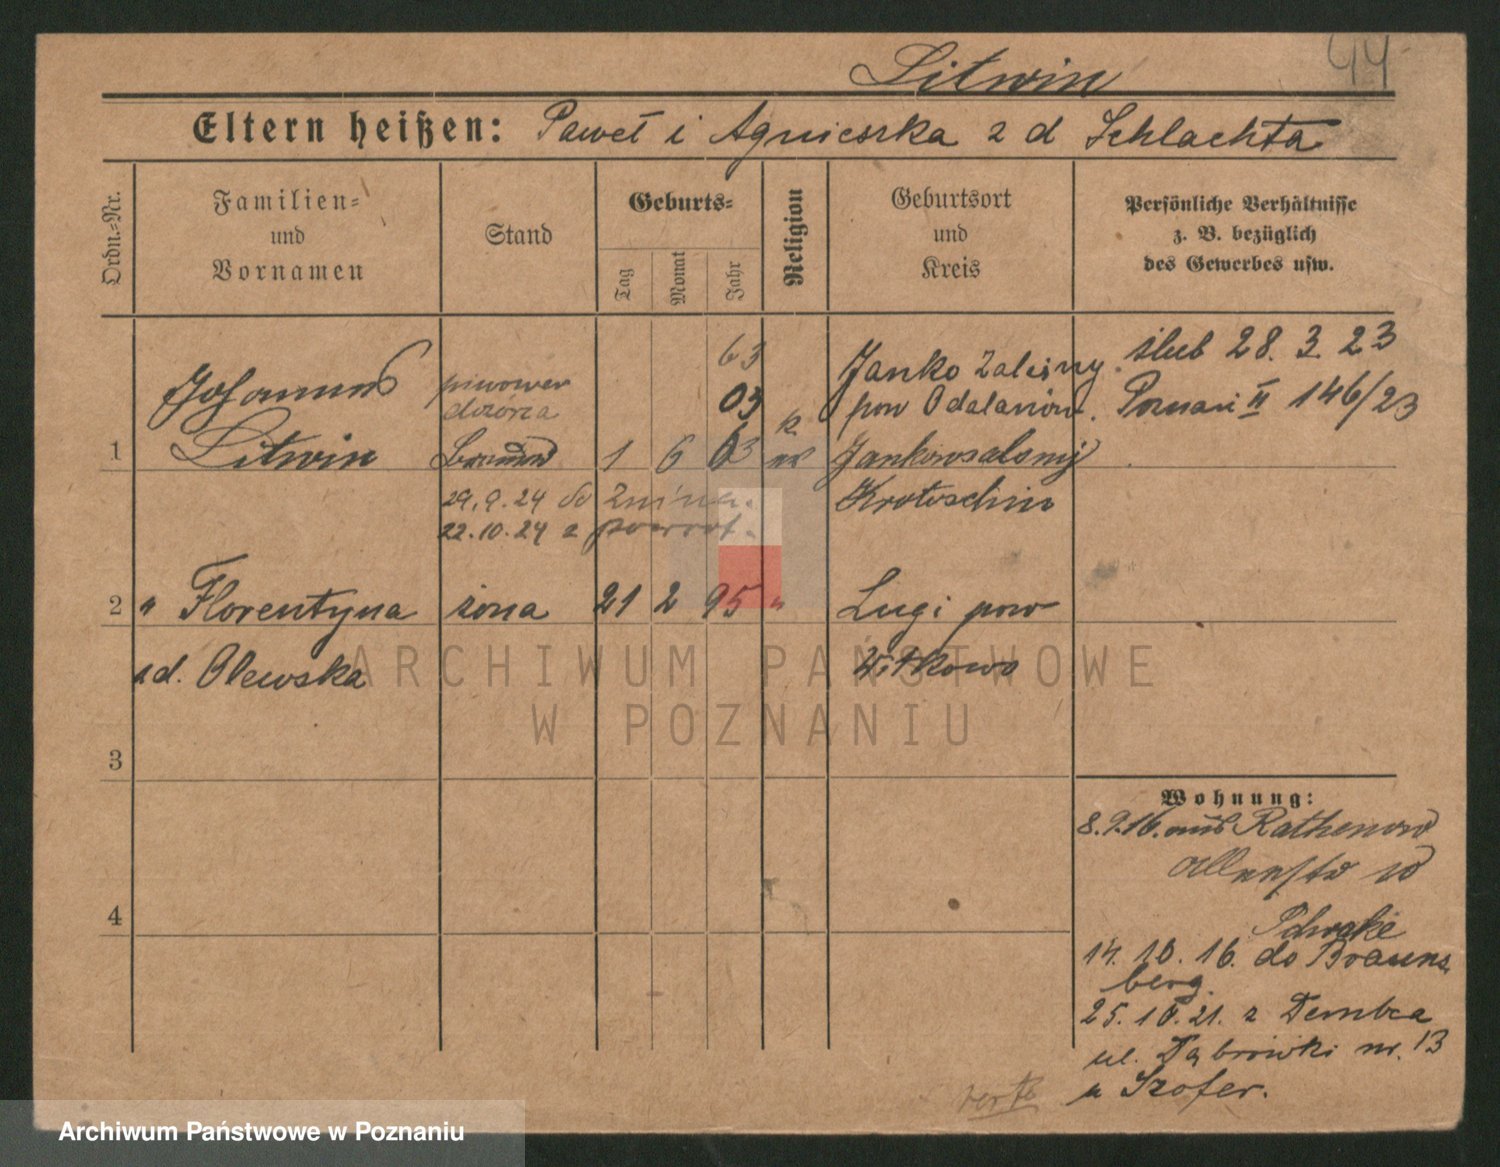 Litwin
44
Eltern heißen: Paweł i Agnieszka z d Schlachta
Ordn.-Nr.
Familien-
und
Vornamen
Stand
Geburts-
Tag
Monat
Jahr
Religion
Geburtsort
und
Kreis
Persönliche Verhältnisse
z. B. bezüglich
des Gewerbes usw.
1
Johannes
Litwin
piwowar
dozorca
1 6 03
63
03
k
Janko Zaleśny
pow Odalanów.
Jankowzalesny
Krotoschin
ślub 28. 3. 23
Poznań II 146/23
29.9.24 do Żnina.
22.10.24 z powrot.
2
" Florentyna
zd. Olewska
żona
21 2 95 "
Lugi pow
Witkowo
3
4
Wohnung:
8.9.16. aus Rathenow
14. 10. 16. do Brauns
berg.
25. 10. 21. z Dembca
ul. Dąbrówki nr. 13
u Szofer.
verte
ARCHIWUM PAŃSTWOWE
W POZNANIU
Archiwum Państwowe w Poznaniu